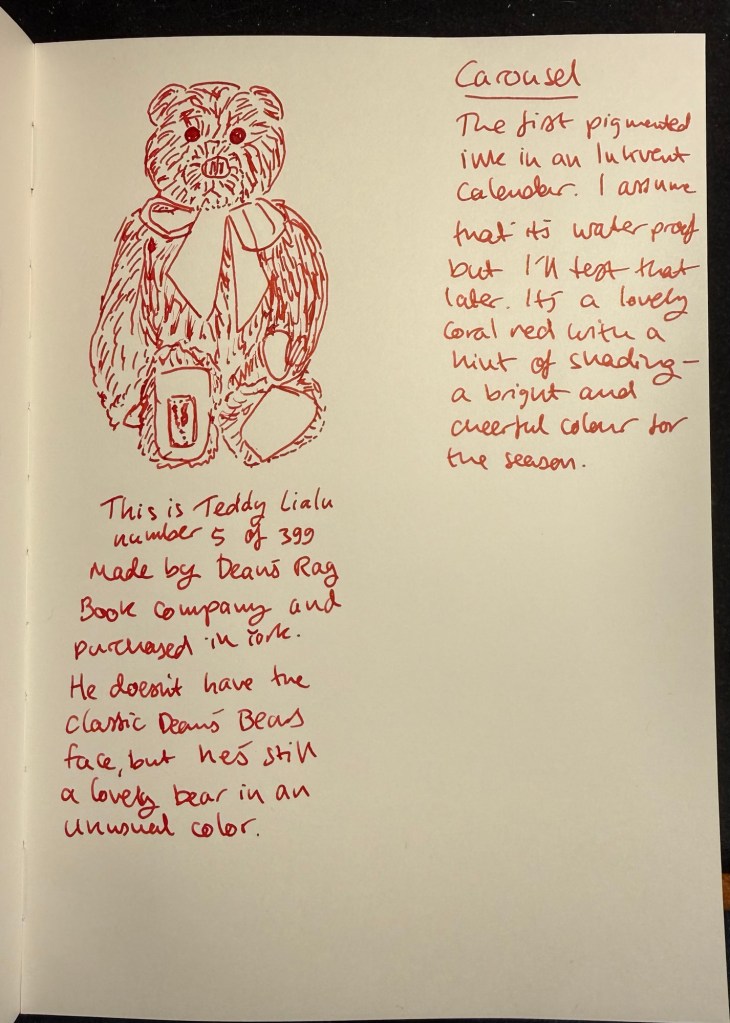 Carousel
The first pigmented
ink in an Inkvent
Calendar. I assume
that it's waterproof
but I'll test that
later. It's a lovely
coral red with a
hint of shading –
a bright and
cheerful colour for
the season.
This is Teddy Lialu
number 5 of 399
Made by Dean's Rag
Book company and
purchased in York.
He doesn't have the
classic Dean's Bears
face, but he's still
a lovely bear in an
unusual color.